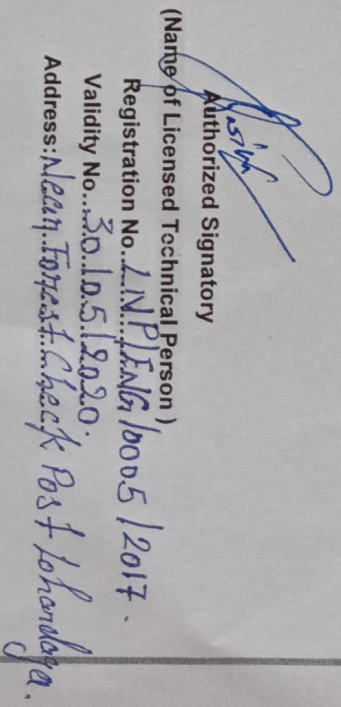 Authorized Signatory
(Name of Licensed Technical Person )
Registration No. LNP/ENG/0005/2017.
Validity No. 30/05/2020.
Address: Near Forest Check Post Lohardaga.